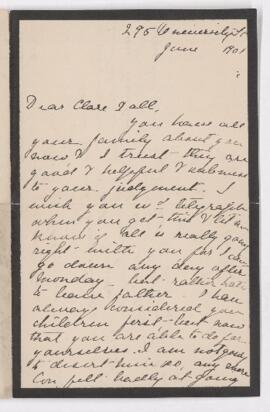 295 University St
June 1901
Dear Clare & all,
You have all
your family about you
now & I trust they are
good & helpful &
to your judgment. I
wish you w'd telegraph
when you get this & let me
know if all is really going
right with you for I can
go down any day after
Monday - but rather hate
to leave father. I have
always considered your
children first - but now
that you are able to do for
yourselves I am not going
to desert him so, any more
Con fell badly at